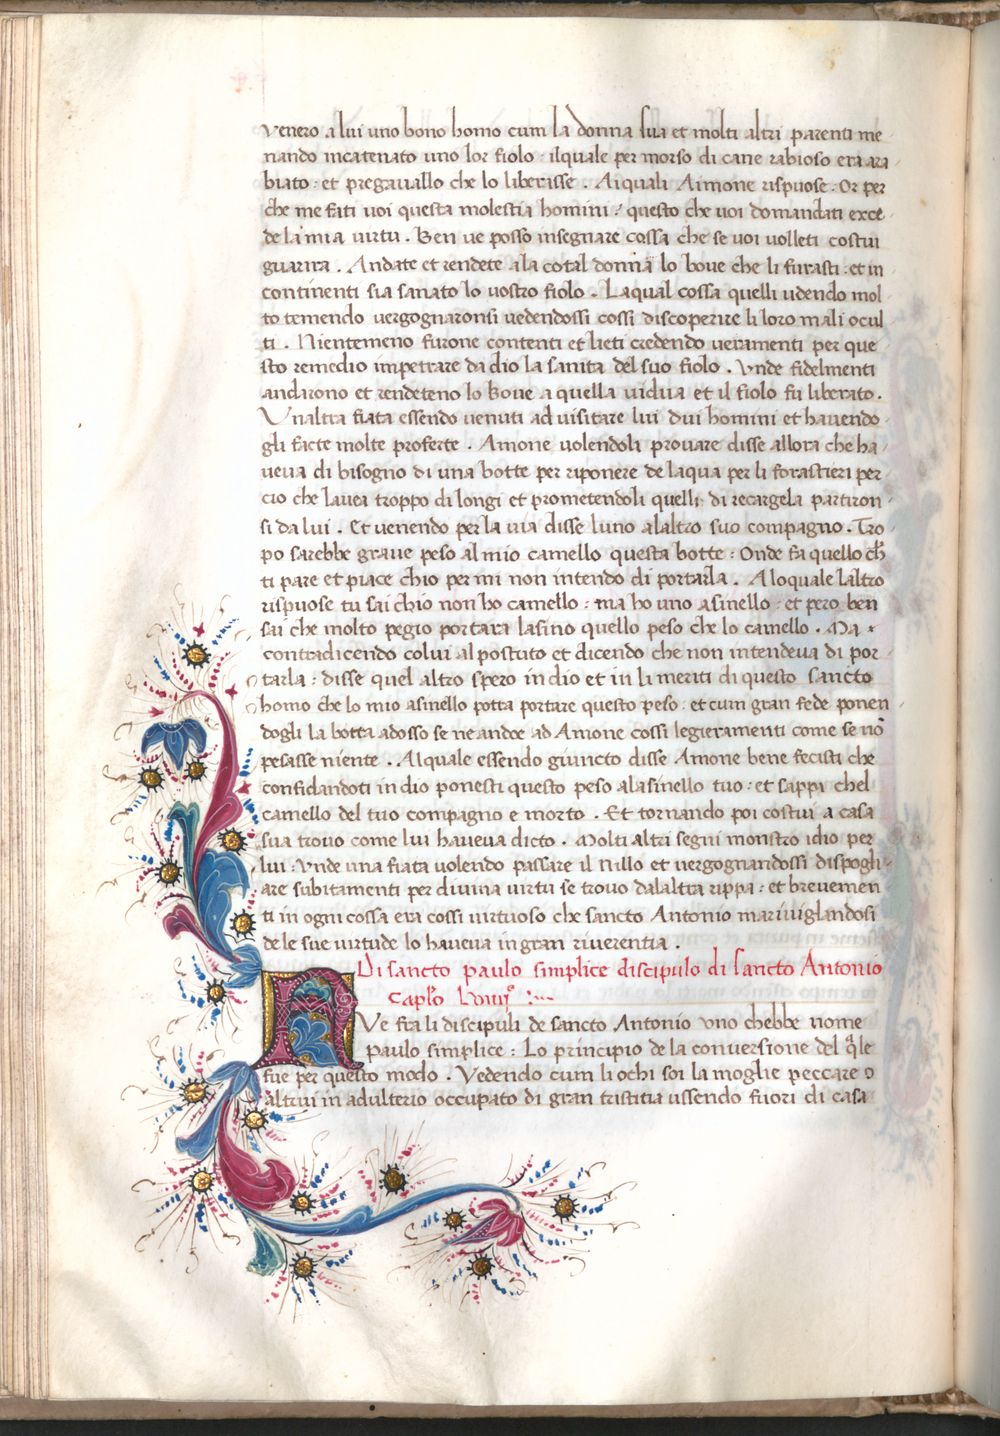 venero a lui uno bono homo cum la donna sua et molti altri parenti me
nando incatenato uno lor fiolo : ilquale per morso di cane rabioso era ara
biato : et pregauallo che lo liberisse . Ai quali Aimone rispuose . Or per
che me fati uoi questa molestia homini ? questo che uoi domandati exce
de la mia uirtu . Ben ue posso insegnare cossa che se uoi uolleti costui
guarira . Andate et rendete a la cotal donna lo boue che li furasti : et in
continenti sia sanato lo uostro fiolo . Laqual cossa quelli udendo mol
to temendo uergognaronsi uedendossi cossi discoperire li loro mali ocul
ti . Nientemeno furone contenti et lieti credendo ueramenti per que
sto remedio impetrare da dio la sanita del suo fiolo . Vnde fidelmenti
andarono et rendeteno lo boue a quella uidua et il fiolo fu liberato .
Vnaltra fiata essendo uenuti ad uisitare lui dui homini et hauendo
gli facte molte proferte . Amone uolendoli prouare disse allora che ha
ueua di bisogno di una botte per riponere de laqua per li forastieri per
cio che lauea troppo di longi et prometendoli quelli di recargela partiron
si da lui . Et uenendo per la uia disse luno alaltro suo compagno . Tro
po sarebbe graue peso al mio camello questa botte : Onde fa quello ch̄
ti pare et piace chio per mi non intendo di portarla . A loquale laltro
rispuose tu sai chio non ho camello : ma ho uno asinello : et pero ben
sai che molto pegio portara lasino quello peso che lo camello . Ma
contradicendo colui al postuto et dicendo che non intendeua di por
tarla : disse quel altro spero in dio et in li meriti di questo sancto
homo che lo mio asinello potta portare questo peso : et cum gran fede ponen
dogli la botta adosso se ne andoe ad Amone cossi legieramenti come se nō
pesasse niente . Al quale essendo giuncto disse Amone bene fecisti che
confidandoti in dio ponesti questo peso al asinello tuo : et sappi chel
camello del tuo compagno e morto . Et tornando poi costui a casa
sua trouo come lui haueua dicto . Molti altri segni monstro idio per
lui : Vnde una fiata uolendo passare il nillo et uergognandossi dispogli
are subitamenti per diuina uirtu se trouo dalaltra rippa : et breuemen
ti in ogni cossa era cossi uirtuoso che sancto Antonio mariuiglandosi
de le sue uirtude lo haueua in gran riuerentia .
Di sancto paulo simplice discipulo di sancto Antonio
Caplo
Ve fra li discipuli de sancto Antonio uno chebbe nome
paulo simplice : Lo principio de la conuersione del q̄le
fue per questo modo . Vedendo cum li ochi soi la moglie peccare o
altrui in adulterio occupato di gran tristitia ussendo fuori di casa